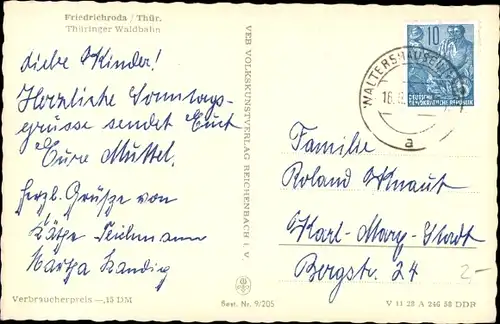 Friedrichroda / Thür.
Thüringer Waldbahn
Liebe Kinder!
Herzliche Sonntags-
grüsse sendet Euch
Eure Muttel.
herzl. Grüße von
Käthe Teichmann
Martha Kandig
Verbraucherpreis —,15 DM
VEB VOLKSKUNSTVERLAG REICHENBACH i. V.
Best. Nr. 9/205
10
DEUTSCHE
DEMOKRATISCHE REPUBLIK
WALTERSHAUSEN
a
Familie
Roland Knaut
Karl-Marx-Stadt
Bergstr. 24
2,-
V 11 28 A 246 58 DDR